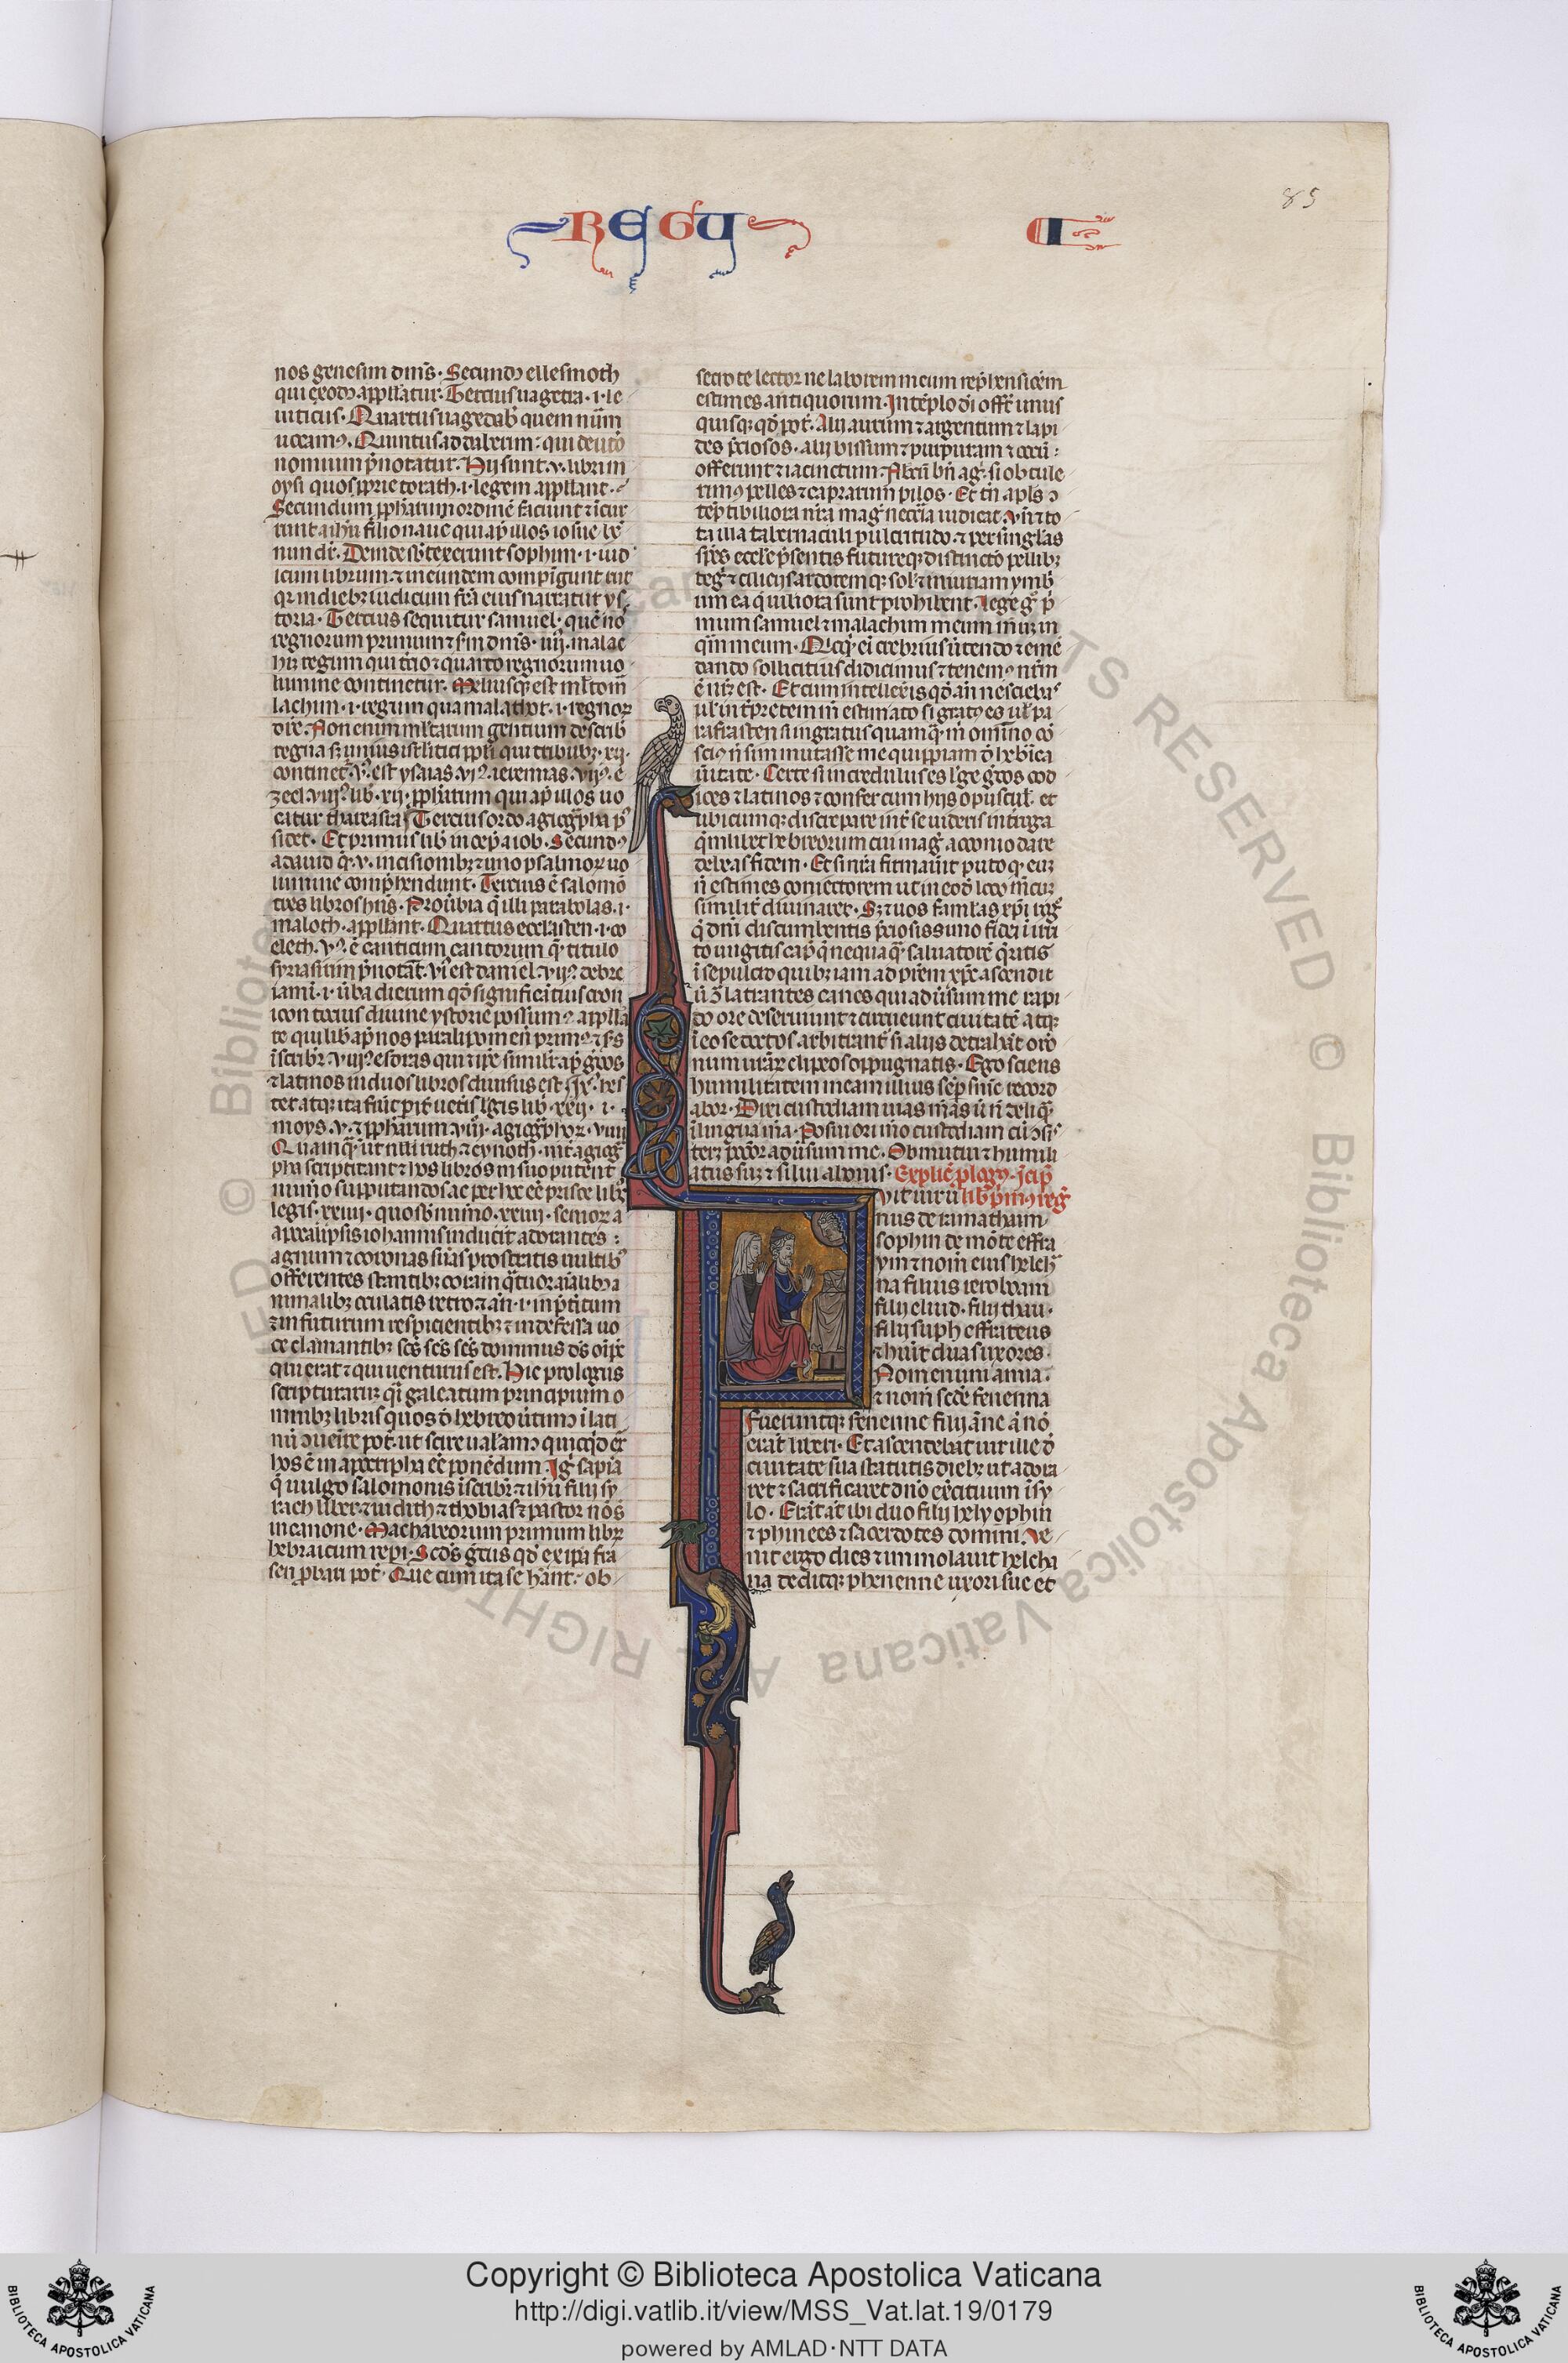 REGU
I
85
nos genesim dicimus. Secundus ellesmoth
qui exodus appellatur. Tercius uagetra .i. le
uiticus. Quartus uagedab quem num
uocamus. Quintus addabarim qui deuto
nomium pnotatur. Hii sunt .v. libri m
oysi quos pprie torath .i. legem appllant.
Secundum pphetarum ordinem faciunt
nun dr. Deinde subtexerunt sophtim .i. iud
icum librum. et in eundem compingunt rut
qr in diebz iudicum fca eius narratur ys
toria. Tercius sequitur samuel. quem nos
regnorum primum et scdm dicimus. iiii. malac
him regum qui tercio et quarto regnorum uo
lumine continetur. Meliusq est multo m
lachim .i. regum quam malachot .i. regnor
dicere. Non enim multarum gentium describ
regna sz unius israelitici ppli qui tribubz .xii.
continet. v. est ysaias. vi. ieremias. vii. e
zeel. viii. lib. xii. pphetarum qui ap illos uo
citur thareasra. Tercius ordo agiographa p
sidet. Et primus lib incepta iob. Secundus
a dauid q. v. incisionibz et uno psalmor uo
lumine comprehendunt. Tercius e salomo
tres libros hns. Prouerbia q illi parabolas .i.
maloth appllant. Quartus ecclasten .i. co
eleth. v. e canticum cantorum q titulo
syrasirim pnotant. vi. est daniel. vii. debre
iamim .i. uerba dierum qd significantius cron
icon tocius diuine ystorie possumus appella
re qui lib ap nos paralipomenon primus et scds
inscribr. viii. esdras qui et ipse similiter ap grecos
et latinos in duos libros diuisus est. ix. hes
ter atqz ita fiunt pariter ueteris legis libri .xxii. .i.
moysi .v. et pphetarum .viii. agiographor .viiii.
Quamq ut nulli ruth et cynoth int agiogra
pha scriptitant et hos libros in suo putent
numero supputandos ac per hec esse prisce libros
legis .xxiiii. quos sub numero .xxiiii. seniorum a
apocalipsis iohannis inducit adorantes
agnum et coronas suas prostratis uultibus
offerentes stantibz coram quatuor animalibus a
nimalibz oculatis retro et ante .i. in preteritum
et in futurum respicientibz et indefessa uo
ce clamantibz scs scs scs dominus ds oips
qui erat et qui uenturus est. Hic prologus
scripturarum quasi galeatum principium o
mnibz libris quos de hebreo uertimus in lati
num conuenire pot. ut scire ualeamus quicqd extra
hos e in apocripha esse ponendum. Igitur sapia
q uulgo salomonis inscribr et ihu filii sy
rach liber et iudith et thobias et pastor non s
in canone. Machabeorum primum librum
hebraicum repi. Scds grecus qd ex ipa fra
sen probari pot. Que cum ita se habeant ob
secro te lector ne laborem meum reprehensionem
estimes antiquorum. In templo dei offert unus
quisqz qd pot. Alii aurum et argentum et lapi
des preciosos. alii bissum et purpuram et coccum
offerunt et iacinctum. Nobiscum bene agitur si obtule
rimus pelles et caprarum pilos. Et tamen apostolus con
temptibiliora nostra magis necessaria iudicat. Vnde et to
ta illa tabernaculi pulcritudo et per singulas
species ecclesie presentis futureqz distinctio pellibz
tegitur et ciliciis ardoremqz solis et iniuriam ymbri
um ea que uiliora sunt prohibent. Lege ergo pri
mum samuel et malachim meum meum inquam
meum. Quicqd enim crebrius uertendo et emen
dando sollicitius didicimus et tenemus nostrum
est. Et cum intellexeris qd an nesciebas
uel interpretem me estimato si gratus es uel pa
rafrasten si ingratus quamqz michi omnino con
scius non sim mutasse me quippiam de hebraica
ueritate. Certe si incredulus es lege grecos cod
ices et latinos et confer cum hiis opusculis et
ubicumqz discrepare inter se uideris interroga
quemlibet hebreorum cui magis accomodare
debeas fidem. Et si nostra firmauerit puto qd eum
non estimes coniectorem ut in eodem loco mecum
similiter diuinaret. Sz et uos famulas xpi rogo
que dni discumbentis preciosissimo fidei
to ungitis caput que nequaquam saluatorem queritis
in sepulcro quibz iam ad patrem xpc ascendit
ut contra latrantes canes qui aduersum me rapi
do ore deseruiunt et circueunt ciuitatem atqz
in eo se doctos arbitrantur si aliis detrahant oro
num uestrarum clipeos oppugnatis. Ego sciens
humilitatem meam illius semper sententie record
abor. Dixi custodiam uias meas ut non delinquam
in lingua mea. Posui ori meo custodiam cum consis
teret peccator aduersum me. Obmutui et humili
atus sum et silui a bonis. Explicit prologus. Incipit
liber primus regum
Vit uir unus
nus de ramathaim
sophim de monte effra
ym et nomen eius helch
na filius ieroboam
filii eliud. filii thau.
filii suph effrateus
et habuit duas uxores.
Nomen uni anna.
et nomen secunde fenenna
Fueruntqz fenenne filii anne autem non
erant liberi. Et ascendebat uir ille de
ciuitate sua statutis diebz ut adora
ret et sacrificaret domino exercituum in sy
lo. Erant autem ibi duo filii hely ophin
et phinees et sacerdotes domini. Ve
nit ergo dies et immolauit helcha
na deditqz phenenne uxori sue et
© Biblioteca Apostolica Vaticana ALL RIGHTS RESERVED
Copyright © Biblioteca Apostolica Vaticana
http://digi.vatlib.it/view/MSS_Vat.lat.19/0179
powered by AMLAD·NTT DATA
BIBLIOTECA APOSTOLICA VATICANA
BIBLIOTECA APOSTOLICA VATICANA